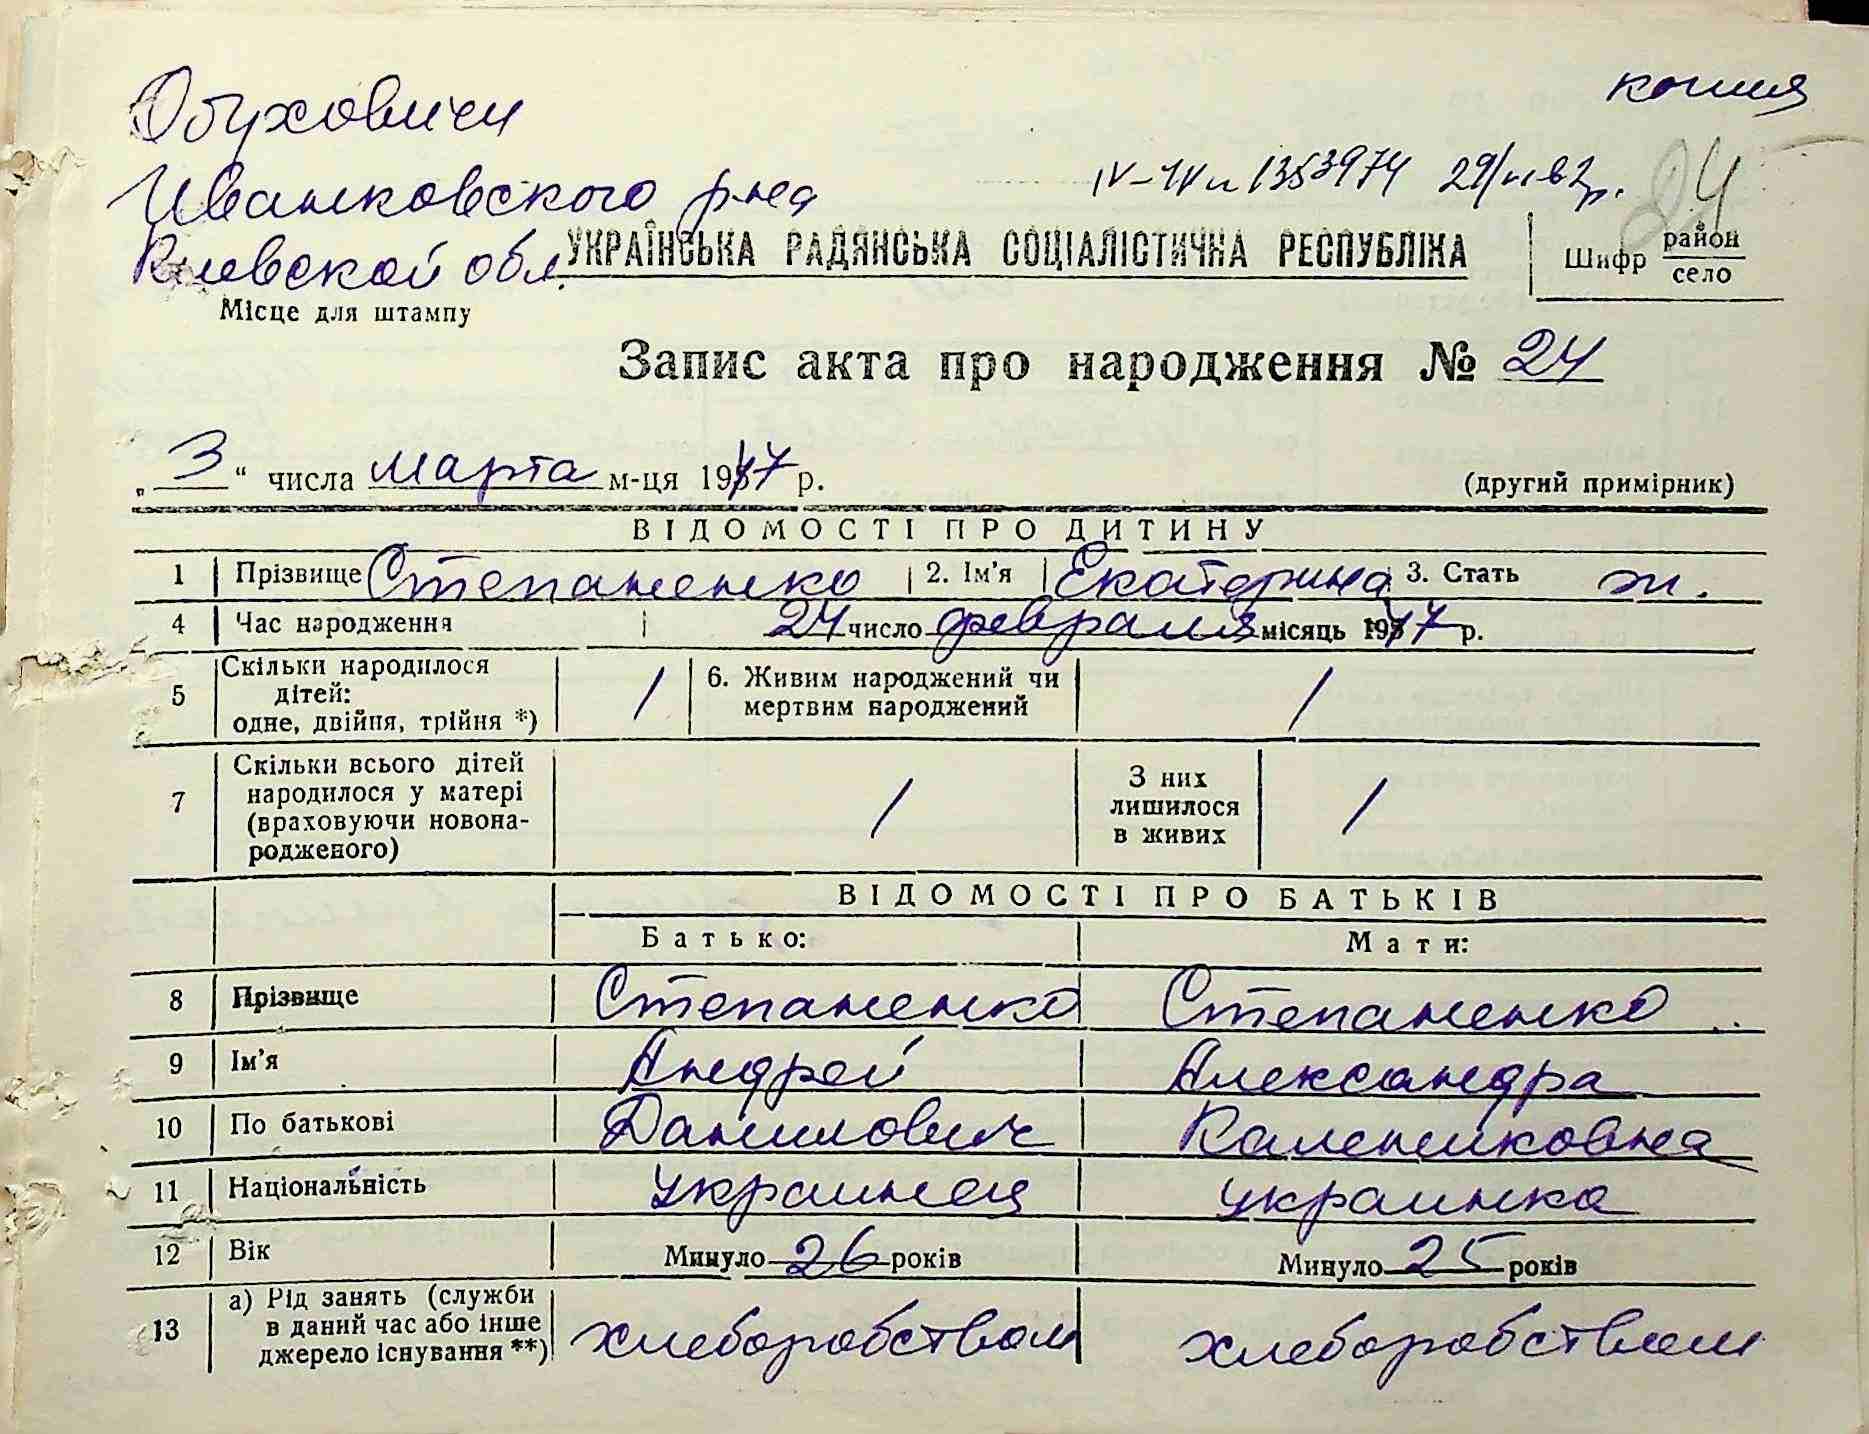 копия
Обуховичи
Иванковского р-на
Киевской обл.
IV-ЧК № 1353974 29/
24
УКРАЇНСЬКА РАДЯНСЬКА СОЦІАЛІСТИЧНА РЕСПУБЛІКА
Шифр район село
Місце для штампу
Запис акта про народження № 24
„3“ числа марта м-ця 1947 р.
(другий примірник)
ВІДОМОСТІ ПРО ДИТИНУ
1 Прізвище Степаненко 2. Ім'я Екатерина 3. Стать ж.
4 Час народження 24 число февраля місяць 1947 р.
5 Скільки народилося дітей: одне, двійня, трійня *) 1 6. Живим народжений чи мертвим народжений 1
7 Скільки всього дітей народилося у матері (враховуючи новонародженого) 1 З них лишилося в живих 1
ВІДОМОСТІ ПРО БАТЬКІВ
Батько: Мати:
8 Прізвище Степаненко Степаненко
9 Ім'я Андрей Александра
10 По батькові Данилович Калениковна
11 Національність украинец украинка
12 Вік Минуло 26 років Минуло 25 років
13 а) Рід занять (служби в даний час або інше джерело існування **) хлеборобством хлеборобством